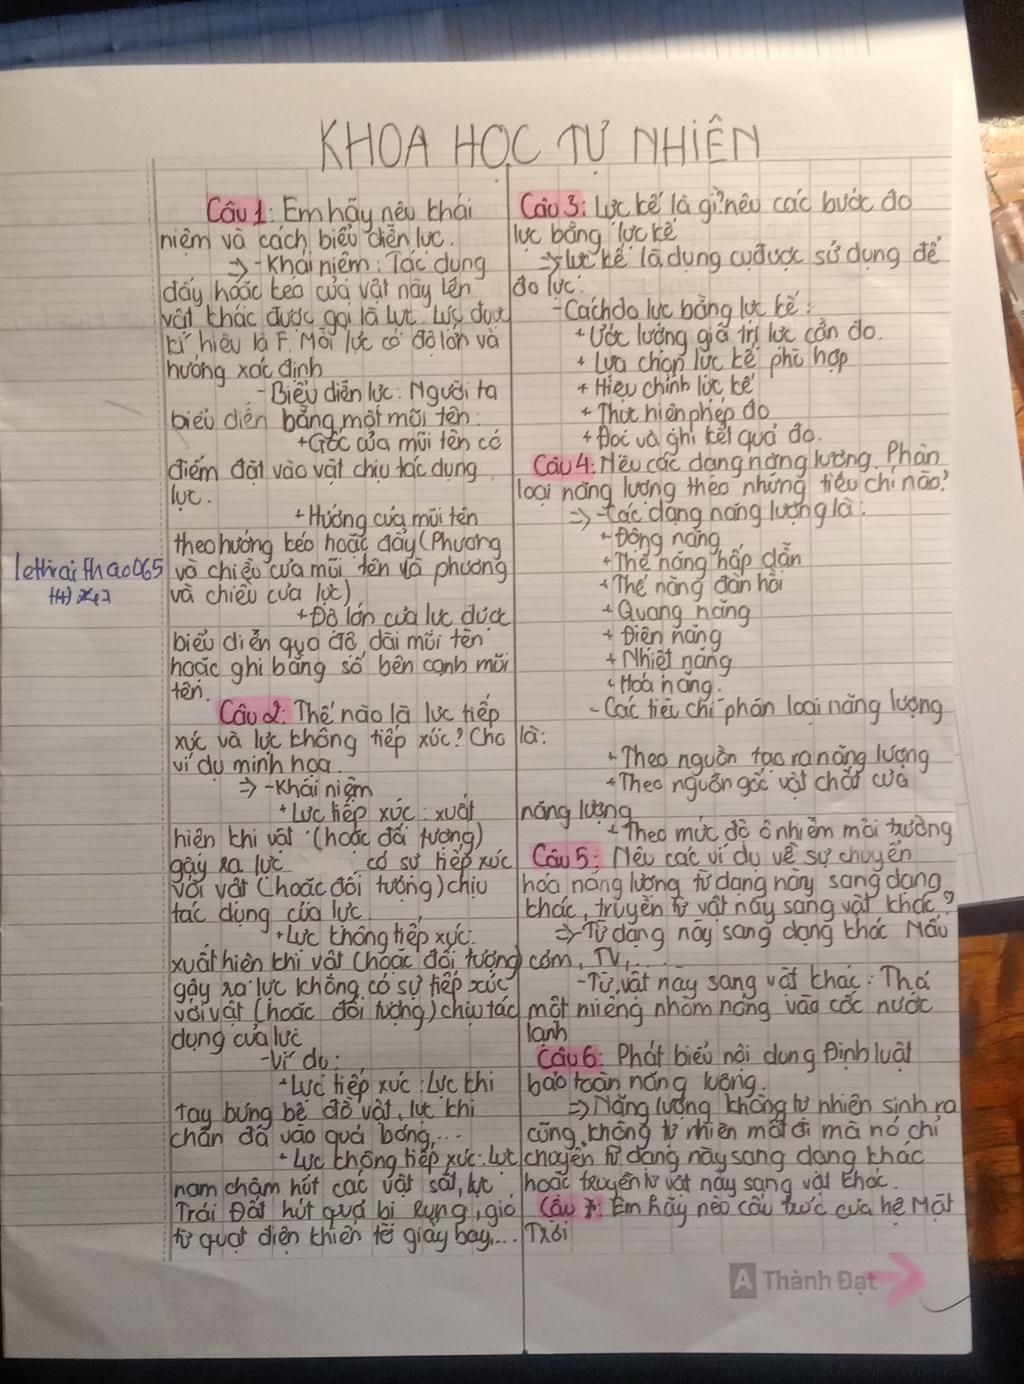 KHOA HỌC TỰ NHIÊN
Câu 1: Em hãy nêu khái
niệm và cách biểu diễn lực.
⇒ - Khái niệm: Tác dụng
đẩy hoặc kéo của vật này lên
vật khác được gọi là lực. Lực được
kí hiệu là F. Mỗi lực có độ lớn và
hướng xác định
- Biểu diễn lực: Người ta
biểu diễn bằng một mũi tên:
+ Gốc của mũi tên có
điểm đặt vào vật chịu tác dụng
lực.
+ Hướng của mũi tên
theo hướng kéo hoặc đẩy (Phương
và chiều của mũi tên là phương
và chiều của lực)
+ Độ lớn của lực được
biểu diễn qua độ dài mũi tên
hoặc ghi bằng số bên cạnh mũi
tên.
Câu 2: Thế nào là lực tiếp
xúc và lực không tiếp xúc? Cho
ví dụ minh họa.
⇒ - Khái niệm
+ Lực tiếp xúc: xuất
hiện khi vật (hoặc đối tượng)
gây ra lực có sự tiếp xúc
với vật (hoặc đối tượng) chịu
tác dụng của lực.
+ Lực không tiếp xúc:
xuất hiện khi vật (hoặc đối tượng)
gây ra lực không có sự tiếp xúc
với vật (hoặc đối tượng) chịu tác
dụng của lực
- Ví dụ:
+ Lực tiếp xúc: Lực khi
tay bưng bê đồ vật, lực khi
chân đá vào quả bóng,...
+ Lực không tiếp xúc: Lực
nam châm hút các vật sắt, lực
Trái Đất hút quả bị rụng, gió
từ quạt điện khiến tờ giấy bay,...
Câu 3: Lực kế là gì? nêu các bước đo
lực bằng lực kế
⇒ Lực kế là dụng cụ được sử dụng để
đo lực.
- Cách đo lực bằng lực kế:
+ Ước lượng giá trị lực cần đo.
+ Lựa chọn lực kế phù hợp
+ Hiệu chỉnh lực kế
+ Thực hiện phép đo
+ Đọc và ghi kết quả đo.
Câu 4: Nêu các dạng năng lượng. Phân
loại năng lượng theo những tiêu chí nào?
⇒ - Các dạng năng lượng là:
+ Động năng
+ Thế năng hấp dẫn
+ Thế năng đàn hồi
+ Quang năng
+ Điện năng
+ Nhiệt năng
+ Hoá năng.
- Các tiêu chí phân loại năng lượng
là:
+ Theo nguồn tạo ra năng lượng
+ Theo nguồn gốc vật chất của
năng lượng
+ Theo mức độ ô nhiễm môi trường
Câu 5: Nêu các ví dụ về sự chuyển
hóa năng lượng từ dạng này sang dạng
khác, truyền từ vật này sang vật khác?
⇒ - Từ dạng này sang dạng khác Nấu
cơm, TV,...
- Từ vật này sang vật khác: Thả
một miếng nhôm nóng vào cốc nước
lạnh
Câu 6: Phát biểu nội dung Định luật
bảo toàn năng lượng.
⇒ Năng lượng không tự nhiên sinh ra
cũng không tự nhiên mất đi mà nó chỉ
chuyển từ dạng này sang dạng khác
hoặc truyền từ vật này sang vật khác.
Câu 7: Em hãy nêo cấu trúc của hệ Mặt
Trời
A Thành Đạt